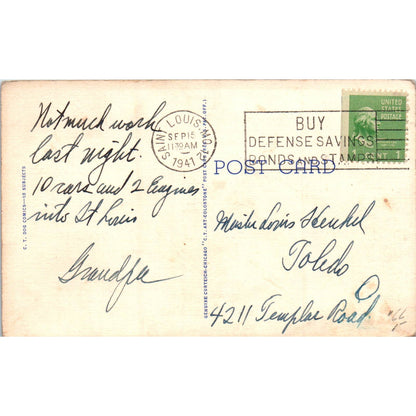 Not much work
last night.
10 cars and 2 Engines
into St Louis
Grandpa
C. T. DOG COMICS—18 SUBJECTS
GENUINE CURTEICH-CHICAGO "C.T. ART-COLORTONE" POST CARD
SAINT LOUIS
SEP 15
11 AM
1941
BUY
DEFENSE SAVINGS
BONDS AND STAMPS
UNITED
STATES
POSTAGE
POST CARD
Master Louis Henkel
Toledo
O
4211 Templar Road